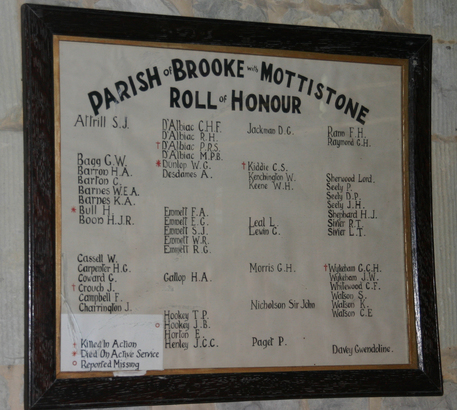 PARISH of BROOKE with MOTTISTONE
ROLL of HONOUR
Attrill S.J.
Bagg G.W.
Barton H.A.
Barton C.
Barnes W.E.A.
Barnes K.A.
* Bull H.
Boon H.J.R.
Cassell W.
Carpenter H.G.
Coward C.
† Crouch J.
Campbell F.
Charrington J.
† Killed In Action
* Died On Active Service
○ Reported Missing
D'Albiac C.H.F.
D'Albiac R.H.
† D'Albiac P.R.S.
D'Albiac M.P.B.
* Dunlop W.G.
Desdames A.
Emmett F.A.
Emmett E.C.
Emmett S.J.
Emmett W.R.
Emmett R.G.
Gallop H.A.
Hookey T.P.
○ Hookey J.B.
Horton E.
Henley J.C.C.
Jackman D.G.
† Kiddie C.S.
Kenchington W.
Keene W.H.
Leal L.
Lewin C.
Morris G.H.
Nicholson Sir John
Paget P.
Rann F.H.
Raymond G.H.
Sherwood Lord.
Seely P.
Seely D.P.
Seely J.H.
Shephard H.J.
Sivier R.T.
Sivier L.T.
† Wykeham G.C.H.
Wykeham J.W.
Whitewood C.F.
Watson S.
Watson K.
Watson C.E
Davey Gwendoline.